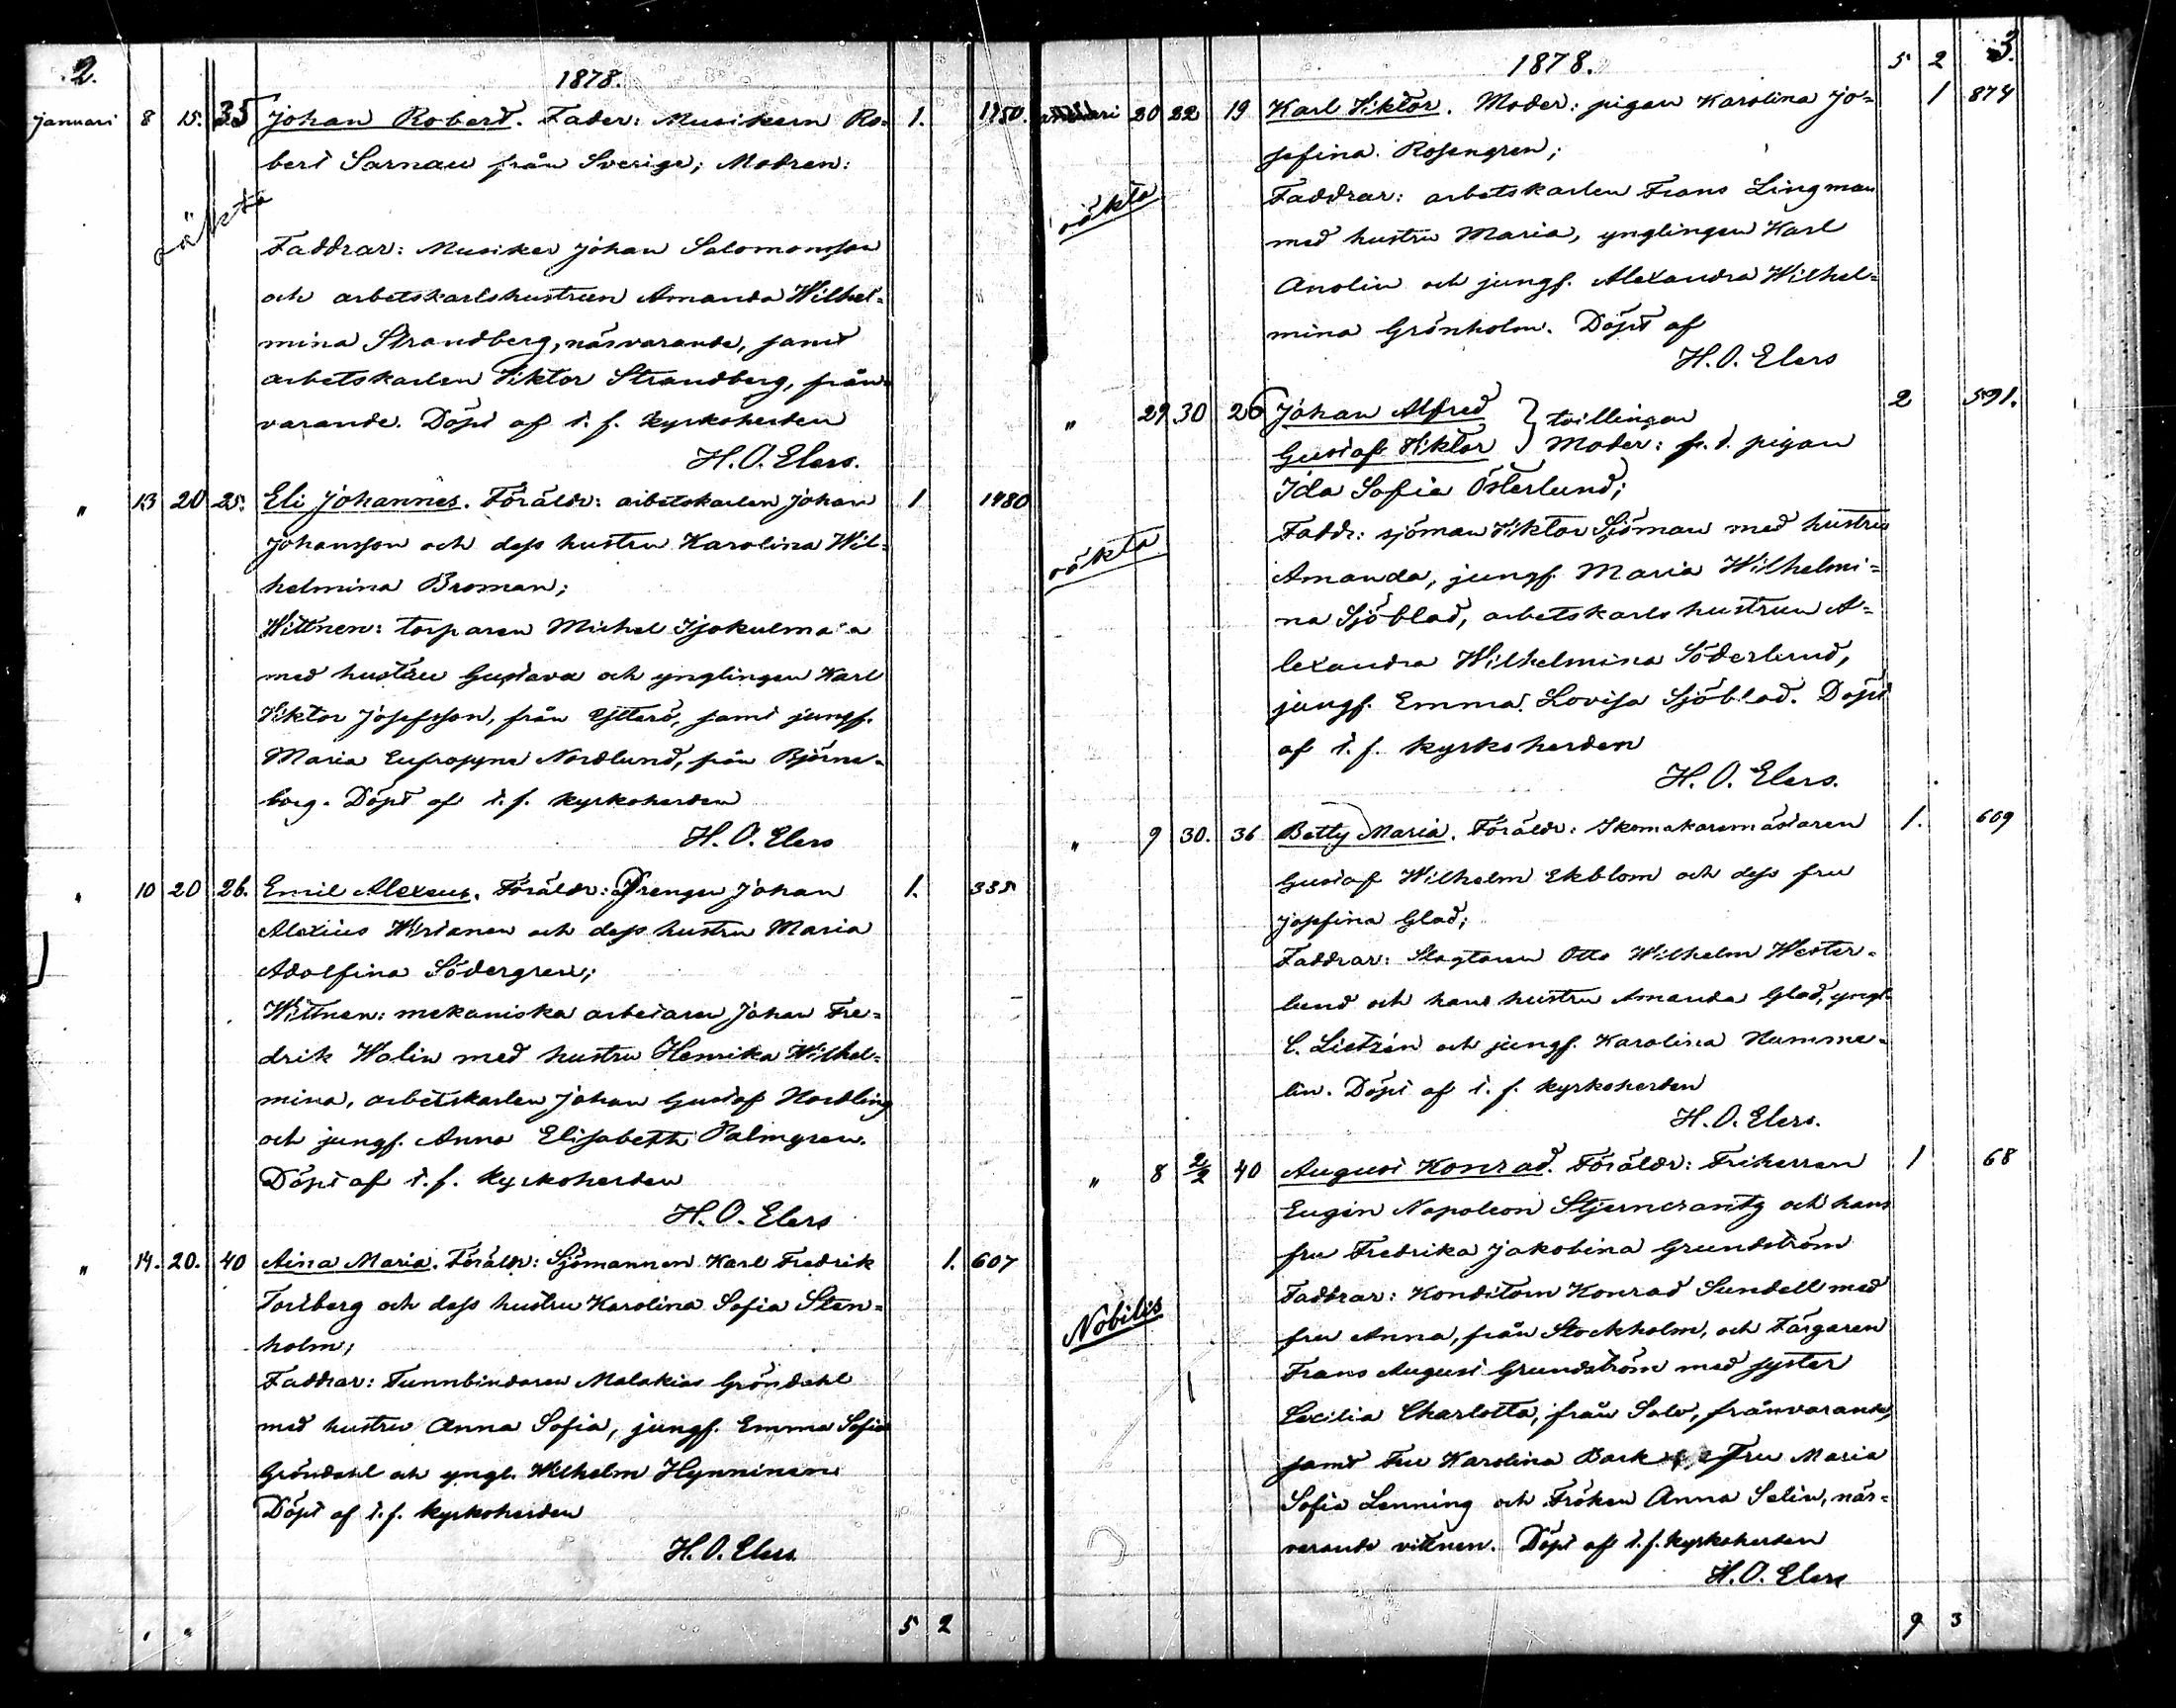 2.
1878.
Januari 8 15. 35 Johan Robert. Fader: Musikern Ro= 1. 1250.
bert Sarnau från Sverige; Modren:
oäkta
Faddrar: Musiker Johan Salomonsson
och arbetskarlshustrun Amanda Wilhel=
mina Strandberg, närvarande, samt
arbetskarlen Viktor Strandberg, från=
varande. Döpt af t. f. kyrkoherden
H. O. Elers.
" 13 20 25. Eli Johannes. Föräldr: arbetskarlen Johan 1 1480
Johansson och dess hustru Karolina Wil=
helmina Broman;
Wittnen: torparen Michel
med hustru Gustava och ynglingen Karl
Viktor Josefsson, från Ytterö, samt jungf.
Maria Eufrosyne Nordlund, från Björne=
borg. Döpt af t. f. kyrkoherden
H. O. Elers
" 10 20 26. Emil Alexius. Föräldr: Drengen Johan 1. 335
Alexius och dess hustru Maria
Adolfina Södergren;
Wittnen: mekaniska arbetaren Johan Fre=
drik Walin med hustru Henrika Wilhel=
mina, arbetskarlen Johan Gustaf Nordling
och jungf. Anna Elisabeth Palmgren.
Döpt af t. f. kyrkoherden
H. O. Elers
" 14. 20. 40 Aina Maria. Föräldr: Sjömannen Karl Fredrik 1. 607
Torsberg och dess hustru Karolina Sofia Sten=
holm;
Faddrar: Tunnbindaren Malakias Gröndahl
med hustru Anna Sofia, jungf. Emma Sofia
Gröndahl och yngl. Wilhelm Hynninen
Döpt af t. f. kyrkoherden
H. O. Elers.
5 2
1878. 5 2 3.
Januari 20 22 19 Karl Viktor. Moder: pigan Karolina Jo= 1 874
sefina Rosengren;
oäkta
Faddrar: arbetskarlen Frans Lingman
med hustru Maria, ynglingen Karl
Anolin och jungf. Alexandra Wilhel=
mina Grönholm. Döpt af
H. O. Elers
" 29 30 26 Johan Alfred } tvillingar 2 591.
Gustaf Viktor } Moder: f. d. pigan
Ida Sofia Österlund;
oäkta
Faddr: sjöman Viktor Sjöman med hustru
Amanda, jungf. Maria Wilhelmi=
na Sjöblad, arbetskarlshustrun A=
lexandra Wilhelmina Söderlund,
jungf. Emma Lovisa Sjöblad. Döpt
af t. f. kyrkoherden
H. O. Elers.
" 9 30. 36 Betty Maria. Föräldr: Skomakaremästaren 1. 609
Gustaf Wilhelm Ekblom och dess fru
Josefina Glad;
Faddrar: Slagtaren Otto Wilhelm Wester=
lund och hans hustru Amanda Glad, yngl.
C. Lietzén och jungf. Karolina Humme=
lin. Döpt af t. f. kyrkoherden
H. O. Elers.
" 8 2/2 40 August Konrad. Föräldr: Friherren 1 68
Eugén Napoleon Stjerncrantz och hans
fru Fredrika Jakobina Grundström
Nobilis
Faddrar: Konditorn Konrad Sundell med
fru Anna, från Stockholm, och Färgaren
Frans August Grundström med syster
Cecilia Charlotta, från Salo, frånvarande,
samt Fru Karolina Bark Fru Maria
Sofia Lenning och Fröken Anna Selin, när=
varande vittnen. Döpt af t. f. kyrkoherden
H. O. Elers
9 3